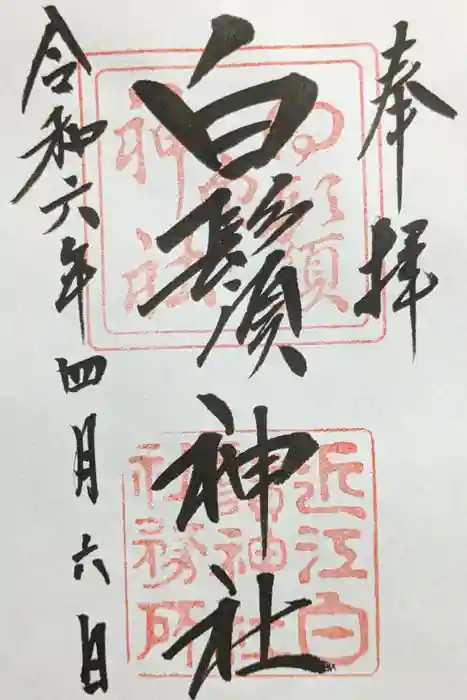 奉拝
白鬚神社
令和六年四月六日
白鬚神社
近江白鬚神社社務所